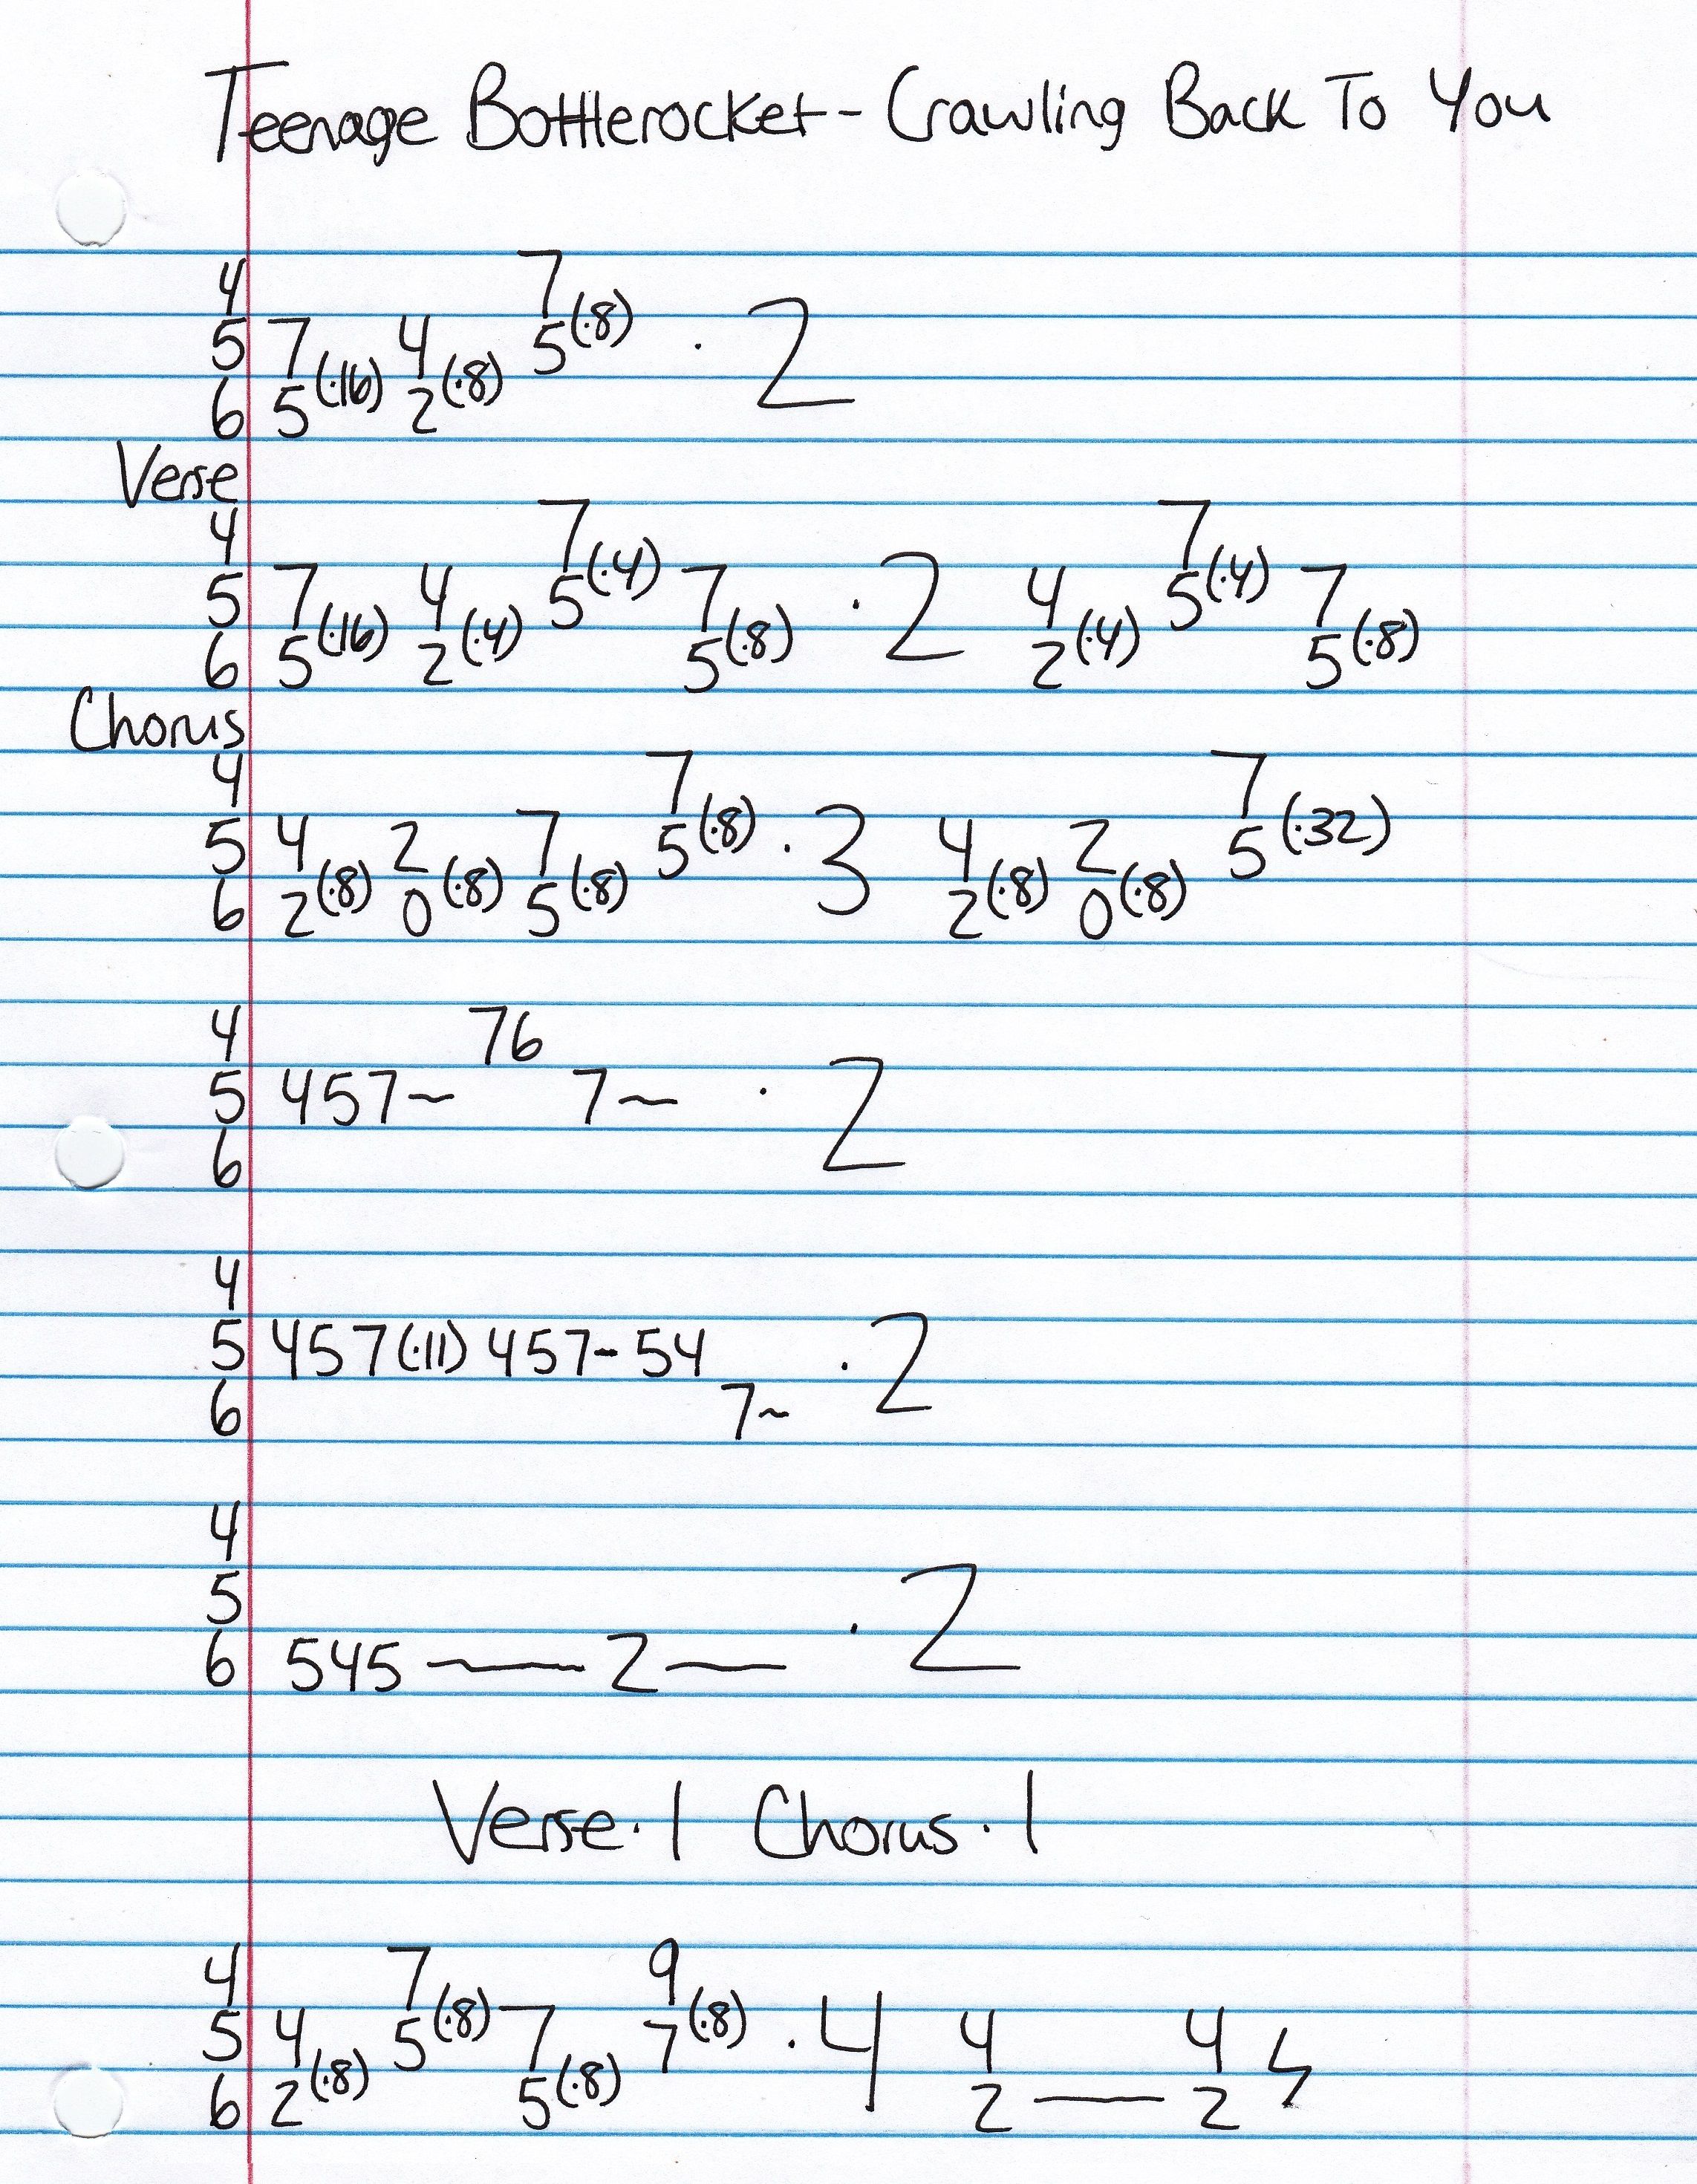 Teenage Bottlerocket - Crawling Back To You
4 7
5 7 4 5(·8) · 2
6 5(·16) 2(·8)
Verse
4 7 7
5 7 4 5(·4) 7 · 2 4 5(·4) 7
6 5(·16) 2(·4) 5(·8) 2(·4) 5(·8)
Chorus
4 7 7
5 4 2 7 5(·8) · 3 4 2 5(·32)
6 2(·8) 0(·8) 5(·8) 2(·8) 0(·8)
4 76
5 457~ 7~ · 2
6
4
5 457(·11) 457-54 · 2
6 7~
4
5
6 545 — 2 — · 2
Verse · 1 Chorus · 1
4 7 9
5 4 5(·8) 7 7(·8) · 4 4 4
6 2(·8) 5(·8) 2 — 2